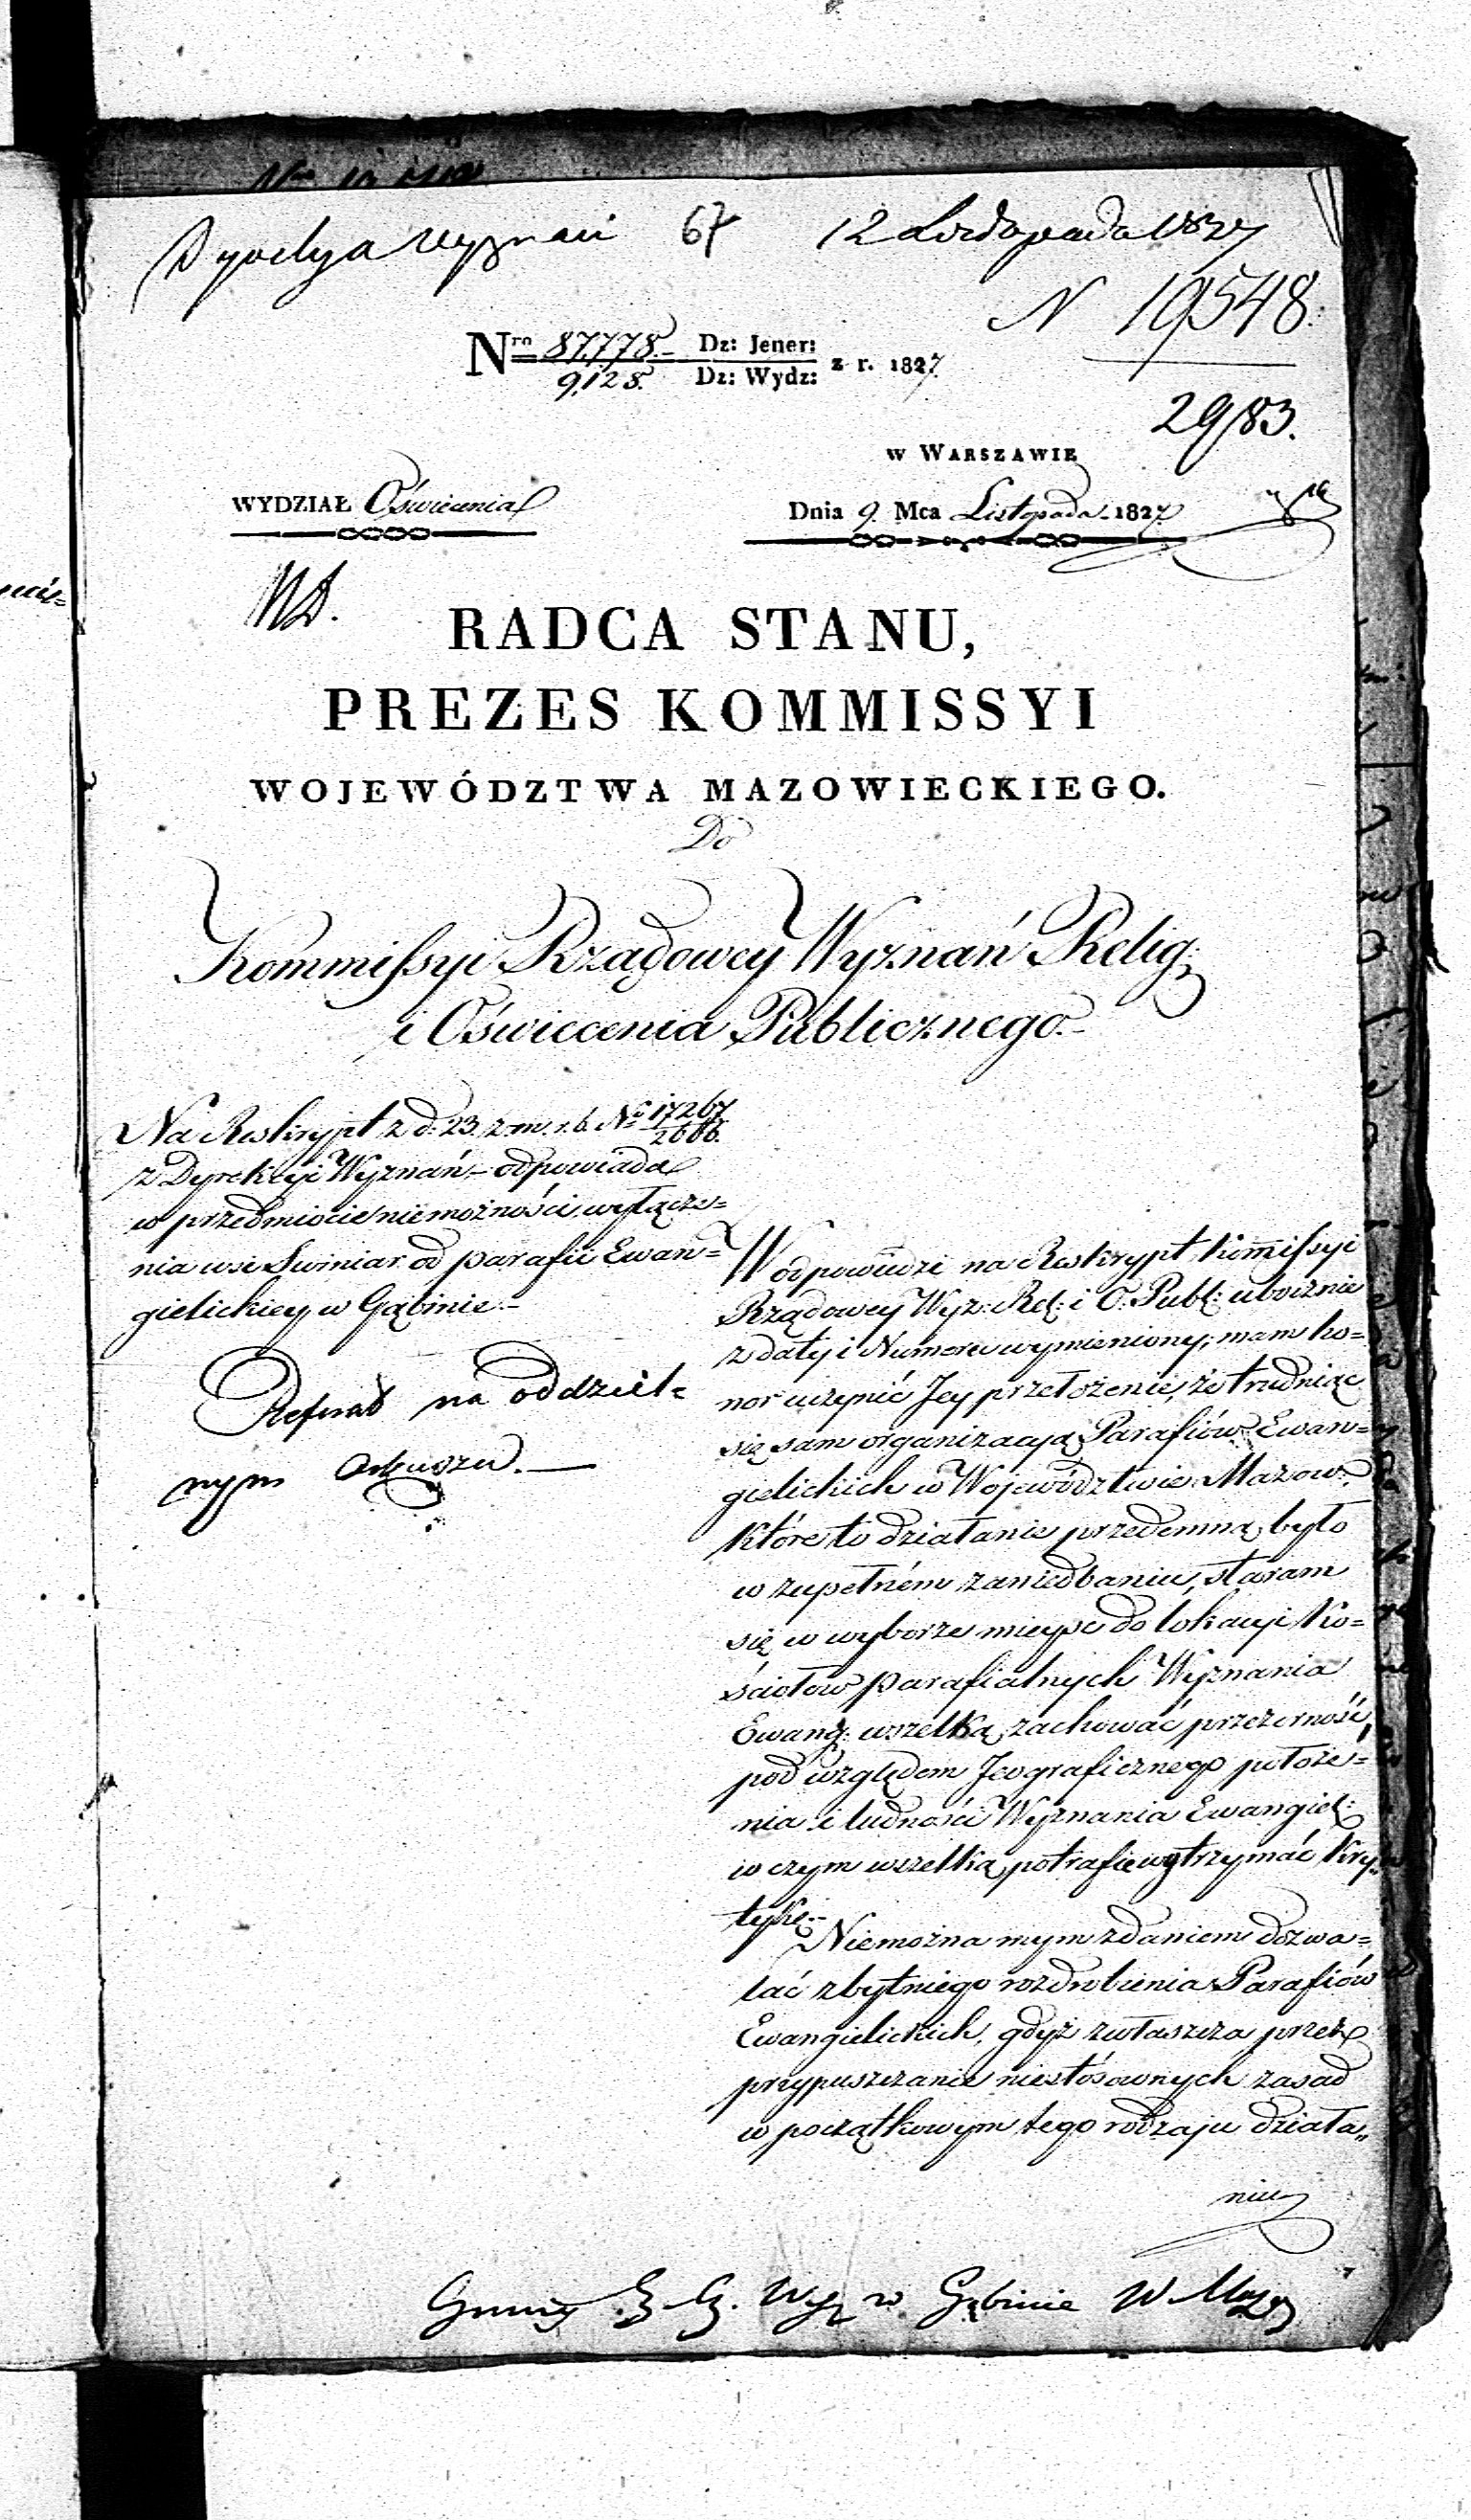 Dyrekcya Wyznań 67 12 Listopada 1827
N 19548.
2983.
Nro 87.778. Dz: Jener:
9,128. Dz: Wydz: z r. 1827.
w Warszawie
WYDZIAŁ Oświecenia
Dnia 9. Mca Listopada 1827
RADCA STANU,
PREZES KOMMISSYI
WOJEWÓDZTWA MAZOWIECKIEGO.
Do
Kommissyi Rządowey Wyznań Relig:
i Oświecenia Publicznego.-
Na Reskrypt z d. 23. z. m. r. b. No 17267
2666.
z Dyrekcyi Wyznań - odpowiada
w przedmiocie niemożności wyłącze=
nia wsi Swiniar od parafii Ewan=
gielickiey w Gąbinie.-
Referat na oddziel=
nym Arkuszu.—
W odpowiedzi na Reskrypt Kommissyi
Rządowey Wyz: Rel: i O. Publ: ubocznie
z daty i Numeru wymieniony, mam ho=
nor uczynić Jey przełożenie, że trudniąc
się sam organizacyą Parafiów Ewan=
gielickich w Województwie Mazow:
które to działanie przedemną było
w zupełném zaniedbaniu, staram
się w wyborze mieysc do lokacyi Ko=
ściołów parafialnych Wyznania
Ewang: wszelką zachować przezorność
pod względem Jeograficznego położe=
nia i ludności Wyznania Ewangiel:
w czym wszelką potrafię wytrzymać kry=
tykę.-
Niemożna mym zdaniem dozwa=
lać zbytniego rozdrobienia Parafiów
Ewangielickich, gdyż zwłaszcza przez
przypuszczanie niestósownych zasad
w początkowym tego rodzaju działa„
niu
Gminy E. A. Wyz w Gąbinie W Maz